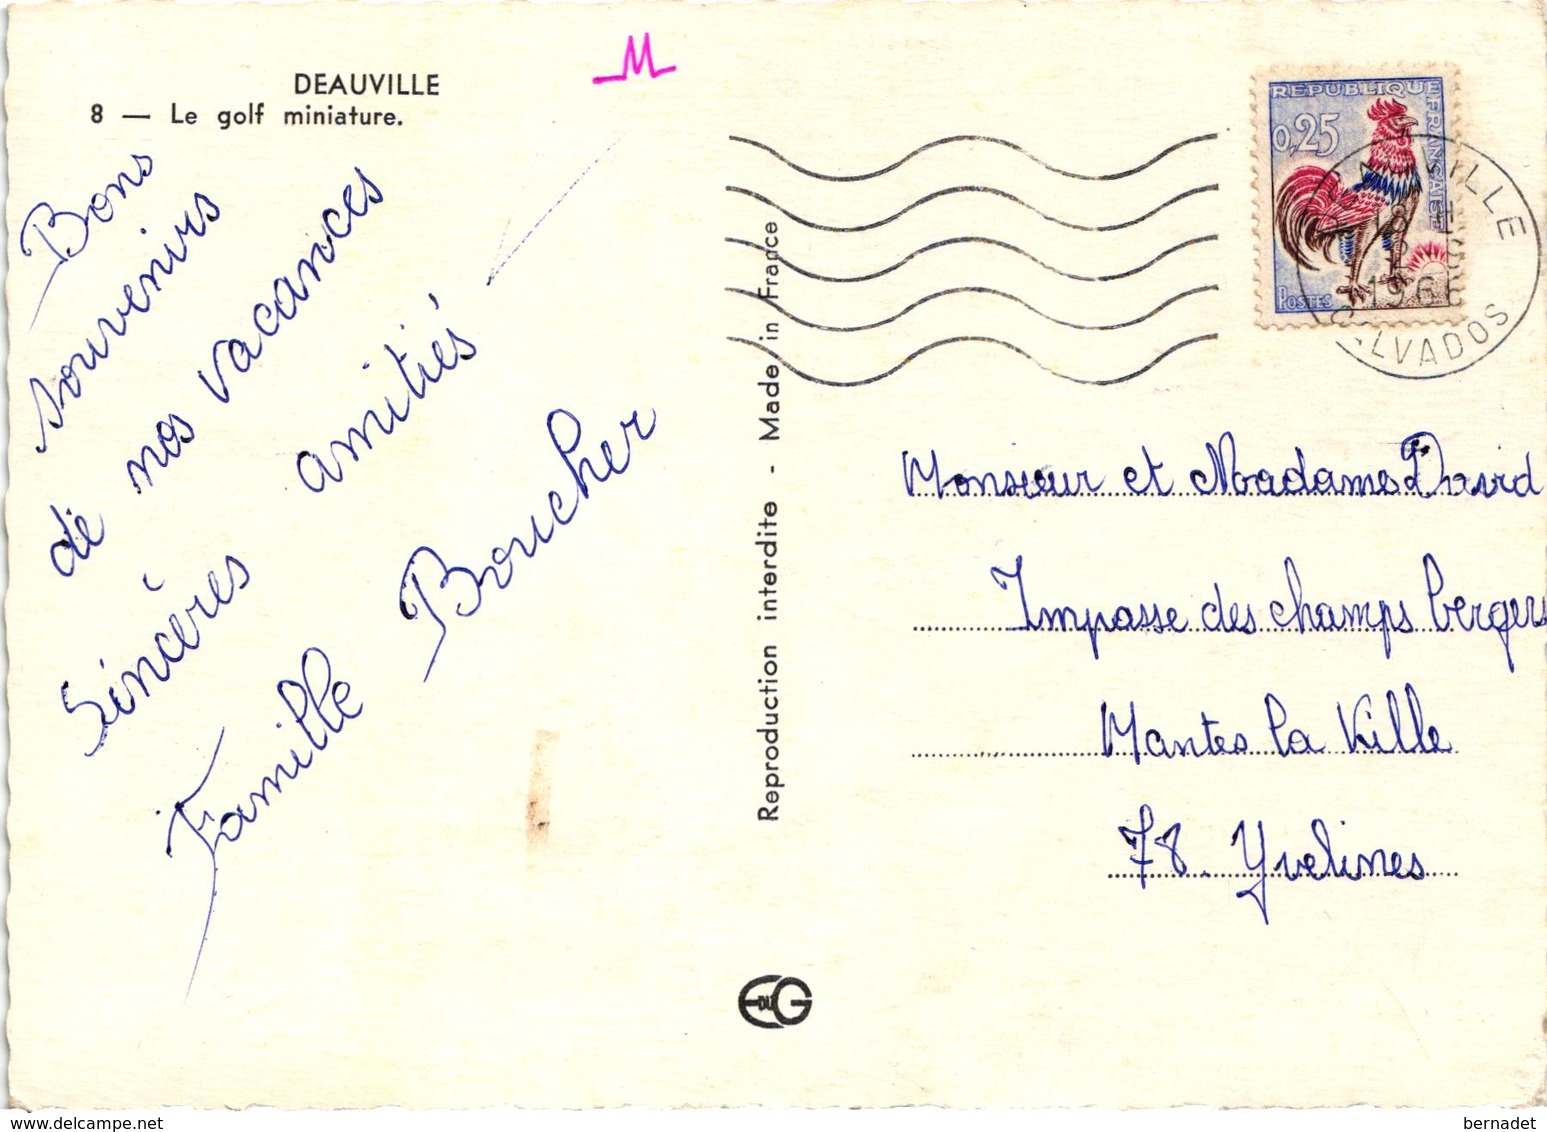 DEAUVILLE
8 — Le golf miniature.
Bons
souvenirs
de nos vacances
Sincères amitiés
Famille Boucher
Reproduction interdite - Made in France
REPUBLIQUE FRANÇAISE
0,25
POSTES
VILLE
18 H
1966
CALVADOS
Monsieur et Madame David
Impasse des champs bergers
Mantes la Ville
78. Yvelines
E DU G
delcampe.net
bernadet